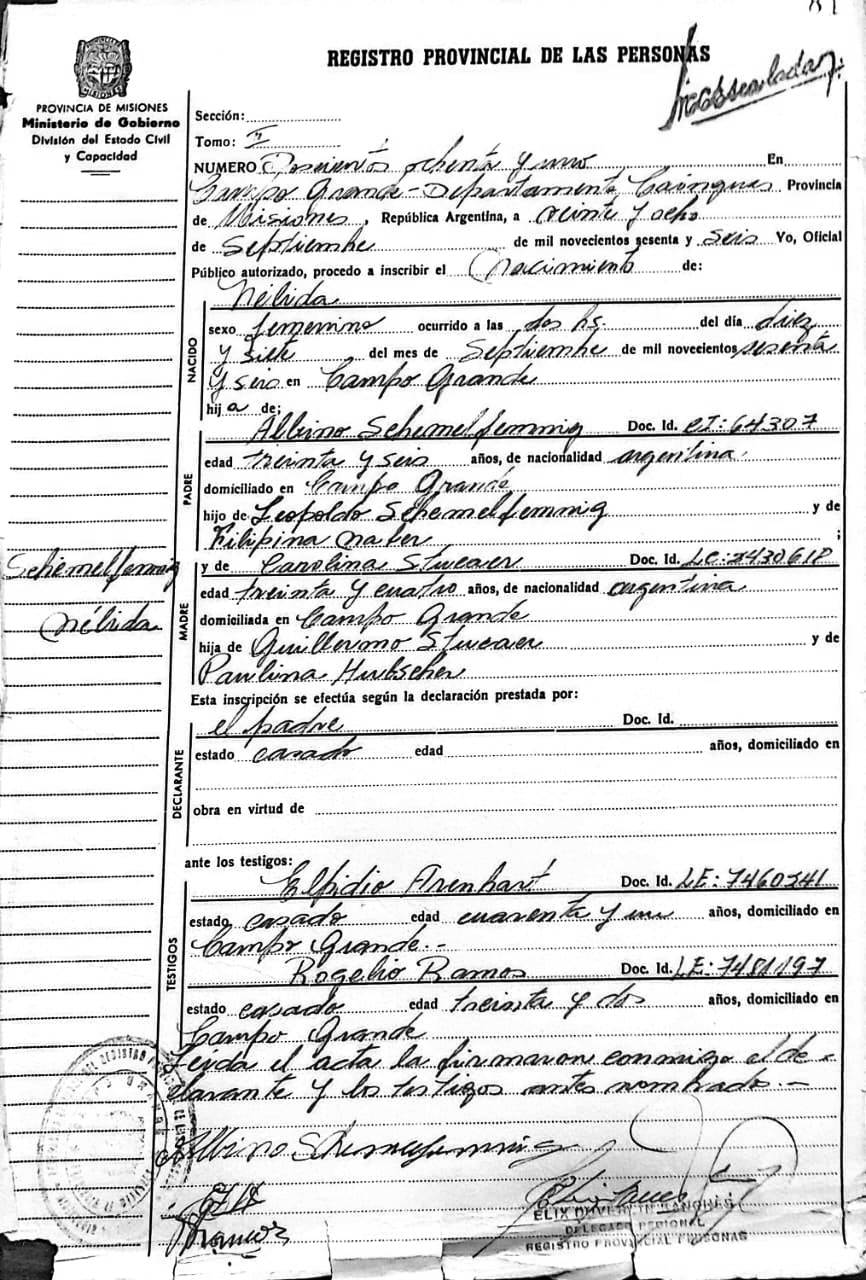 REGISTRO PROVINCIAL DE LAS PERSONAS
PROVINCIA DE MISIONES
Ministerio de Gobierno
División del Estado Civil
y Capacidad
Sección:
Tomo: I
NUMERO Doscientos ochenta y uno En
Campo Grande - Departamento Cainguas Provincia
de Misiones, República Argentina, a veinte y ocho
de Septiembre de mil novecientos sesenta y seis Yo, Oficial
Público autorizado, procedo a inscribir el Nacimiento de:
NACIDO
Nélida
sexo femenino ocurrido a las dos hs. del día diez
y siete del mes de Septiembre de mil novecientos sesenta
y seis en Campo Grande
hija de;
PADRE
Albino Schemelfennig Doc. Id. CI: 64307
edad treinta y seis años, de nacionalidad argentina.
domiciliado en Campo Grande
hijo de Leopoldo Schemelfennig y de
Filipina ;
Schemelfennig
Nélida
MADRE
y de Carolina Doc. Id. LC:
edad treinta y cuatro años, de nacionalidad argentina
domiciliada en Campo Grande
hija de Guillermo y de
Paulina Hubscher
Esta inscripción se efectúa según la declaración prestada por:
DECLARANTE
el padre Doc. Id.
estado casado edad años, domiciliado en
obra en virtud de
ante los testigos:
TESTIGOS
Elpidio Arenhart Doc. Id. LE: 7460341
estado casado edad cuarenta y un años, domiciliado en
Campo Grande.-
Rogelio Ramos Doc. Id. LE: 7481197
estado casado edad treinta y dos años, domiciliado en
Campo Grande
Leida el acta la firmaron conmigo el de-
clarante y los testigos antes nombrado.-
Albino Schemelfennig
Ramos
DELEGADO REGIONAL
REGISTRO PROVINCIAL PERSONAS